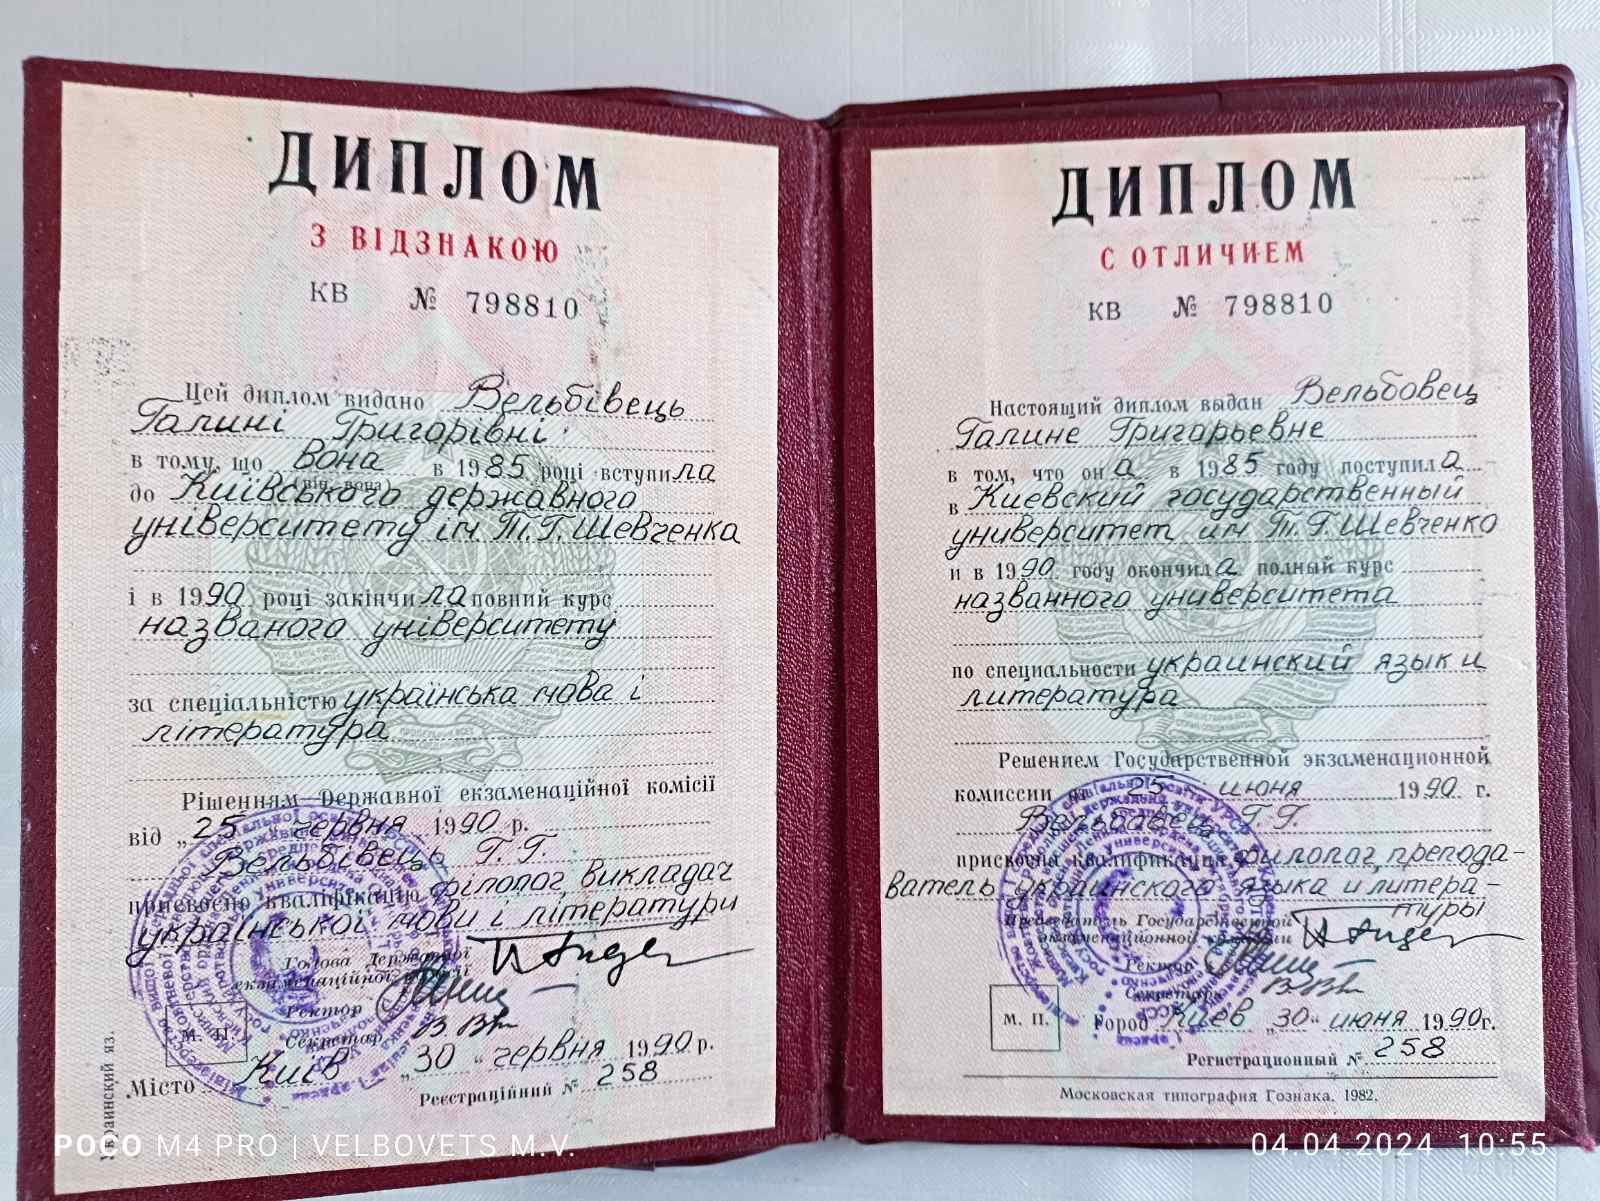 ДИПЛОМ
З ВІДЗНАКОЮ
КВ № 798810
Цей диплом видано Вельбівець
Галині Григорівні
в тому, що вона в 1985 році вступила
(він, вона)
до Київського державного
університету ім. Т.Г. Шевченка
і в 1990 році закінчила повний курс
названого університету
за спеціальністю українська мова і
література
Рішенням Державної екзаменаційної комісії
від „25“ червня 1990 р.
Вельбівець Г. Г.
присвоєно кваліфікацію філолог, викладач
української мови і літератури
Голова Державної
екзаменаційної комісії
Ректор
Секретар
М. П.
Місто Київ „30“ червня 1990 р.
Реєстраційний № 258
Украинский яз.
ДИПЛОМ
С ОТЛИЧИЕМ
КВ № 798810
Настоящий диплом выдан Вельбовец
Галине Григорьевне
в том, что она в 1985 году поступила
в Киевский государственный
университет им Т.Г. Шевченко
и в 1990 году окончила полный курс
названного университета
по специальности украинский язык и
литература
Решением Государственной экзаменационной
комиссии от 25 июня 1990 г.
Вельбовец Г. Г.
присвоена квалификация филолог, препода-
ватель украинского языка и литера-
туры
Председатель Государственной
экзаменационной комиссии
Ректор
Секретарь
М. П.
Город Киев „30“ июня 1990г.
Регистрационный № 258
Московская типография Гознака. 1982.
POCO M4 PRO | VELBOVETS M.V.
04.04.2024 10:55